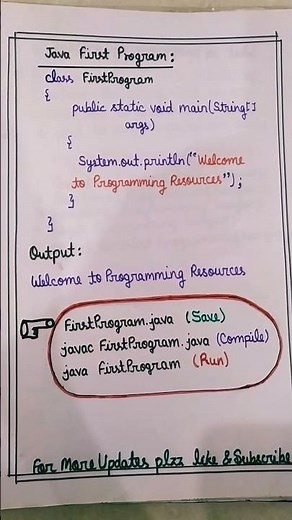 Java First Program:
class FirstProgram
{
public static void main(String[]
args)
{
System.out.println("Welcome
to Programming Resources");
}
}
Output:
Welcome to Programming Resources
FirstProgram.java (Save)
javac FirstProgram.java (Compile)
java FirstProgram (Run)
For More Updates plzz like & Subscribe